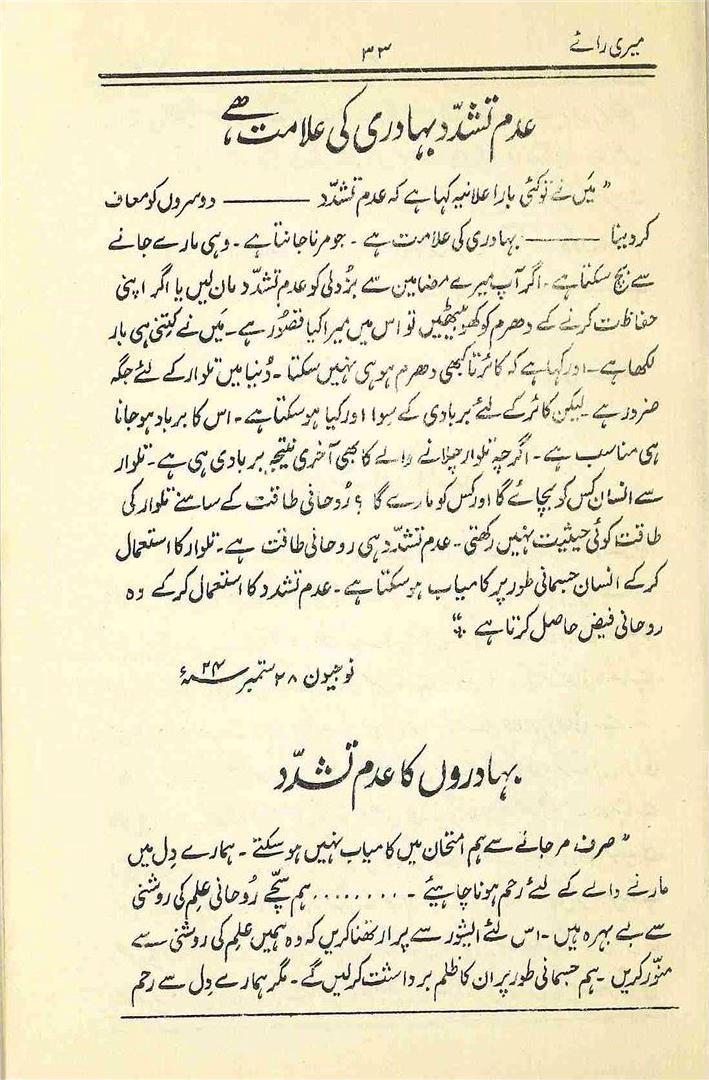 میری رائے ۳۳
عدم تشدّد بہادری کی علامت ہے
” میَں نے تو کئی بار اعلانیہ کہا ہے کہ عدم تشدّد ——— دوسروں کو معاف
کر دینا ——— بہادری کی علامت ہے ۔ جو مرنا جانتا ہے ۔ وہی مارے جانے
سے بچ سکتا ہے ۔ اگر آپ میرے مضامین سے بزُدلی کو عدم تشدّد مان لیں یا اگر اپنی
حفاظت کرنے کے دھرم کو کھو بیٹھیں تو اس میں میرا کیا قصوُر ہے ۔ میَں نے کِتنی ہی بار
لکھا ہے ۔ اور کہا ہے کہ کائرتا کبھی دھرم ہو ہی نہیں سکتا ۔ دُنیا میں تلوار کے لئے جگہ
ضرور ہے ۔ لیکن کائر کے لئے بربادی کے سوا اور کیا ہو سکتا ہے ۔ اس کا برباد ہو جانا
ہی مناسب ہے ۔ اگرچہ تلوار چلانے والے کا بھی آخری نتیجہ بربادی ہی ہے ۔ تلوار
سے انسان کس کو بچائے گا اور کس کو مارے گا ؟ رُوحانی طاقت کے سامنے تلوار کی
طاقت کوئی حیثیت نہیں رکھتی ۔ عدم تشدّد ہی روحانی طاقت ہے ۔ تلوار کا استعمال
کر کے انسان جسمانی طور پر کامیاب ہو سکتا ہے ۔ عدم تشدد کا استعمال کر کے وہ
روحانی فیض حاصل کرتا ہے “
نوجیون ۲۸ ستمبر ۲۴ء
بہادروں کا عدم تشدّد
” صرف مر جانے سے ہم امتحان میں کامیاب نہیں ہو سکتے ۔ ہمارے دِل میں
مارنے والے کے لئے رحم ہونا چاہیئے ۔ ......... ہم سچّے رُوحانی علِم کی روشنی
سے بے بہرہ ہیں ۔ اس لئے ایشور سے پرارتھنا کریں کہ وہ ہمیں علِم کی روشنی سے
منوّر کریں ۔ ہم جسمانی طور پر ان کا ظلم برداشت کر لیں گے ۔ مگر ہمارے دِل سے رحم